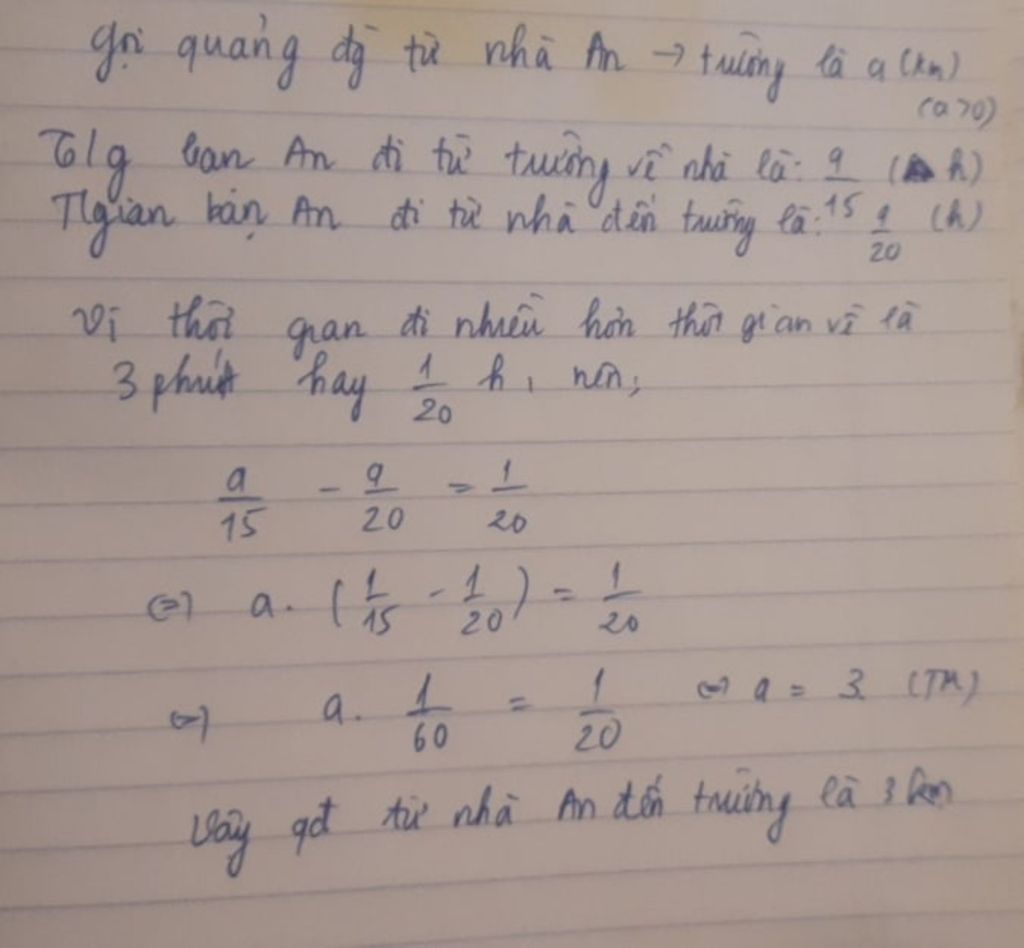 gọi quảng đg từ nhà An → trường là a (km)
(a>0)
T/g bạn An đi từ trường về nhà là: a/15 (h)
Tgian bạn An đi từ nhà đến trường là: a/20 (h)
Vì thời gian đi nhiều hơn thời gian về là
3 phút hay 1/20 h, nên;
a/15 - a/20 = 1/20
<=> a. (1/15 - 1/20) = 1/20
<=> a. 1/60 = 1/20 <=> a = 3. (TM)
Vậy qđ từ nhà An đến trường là 3 km